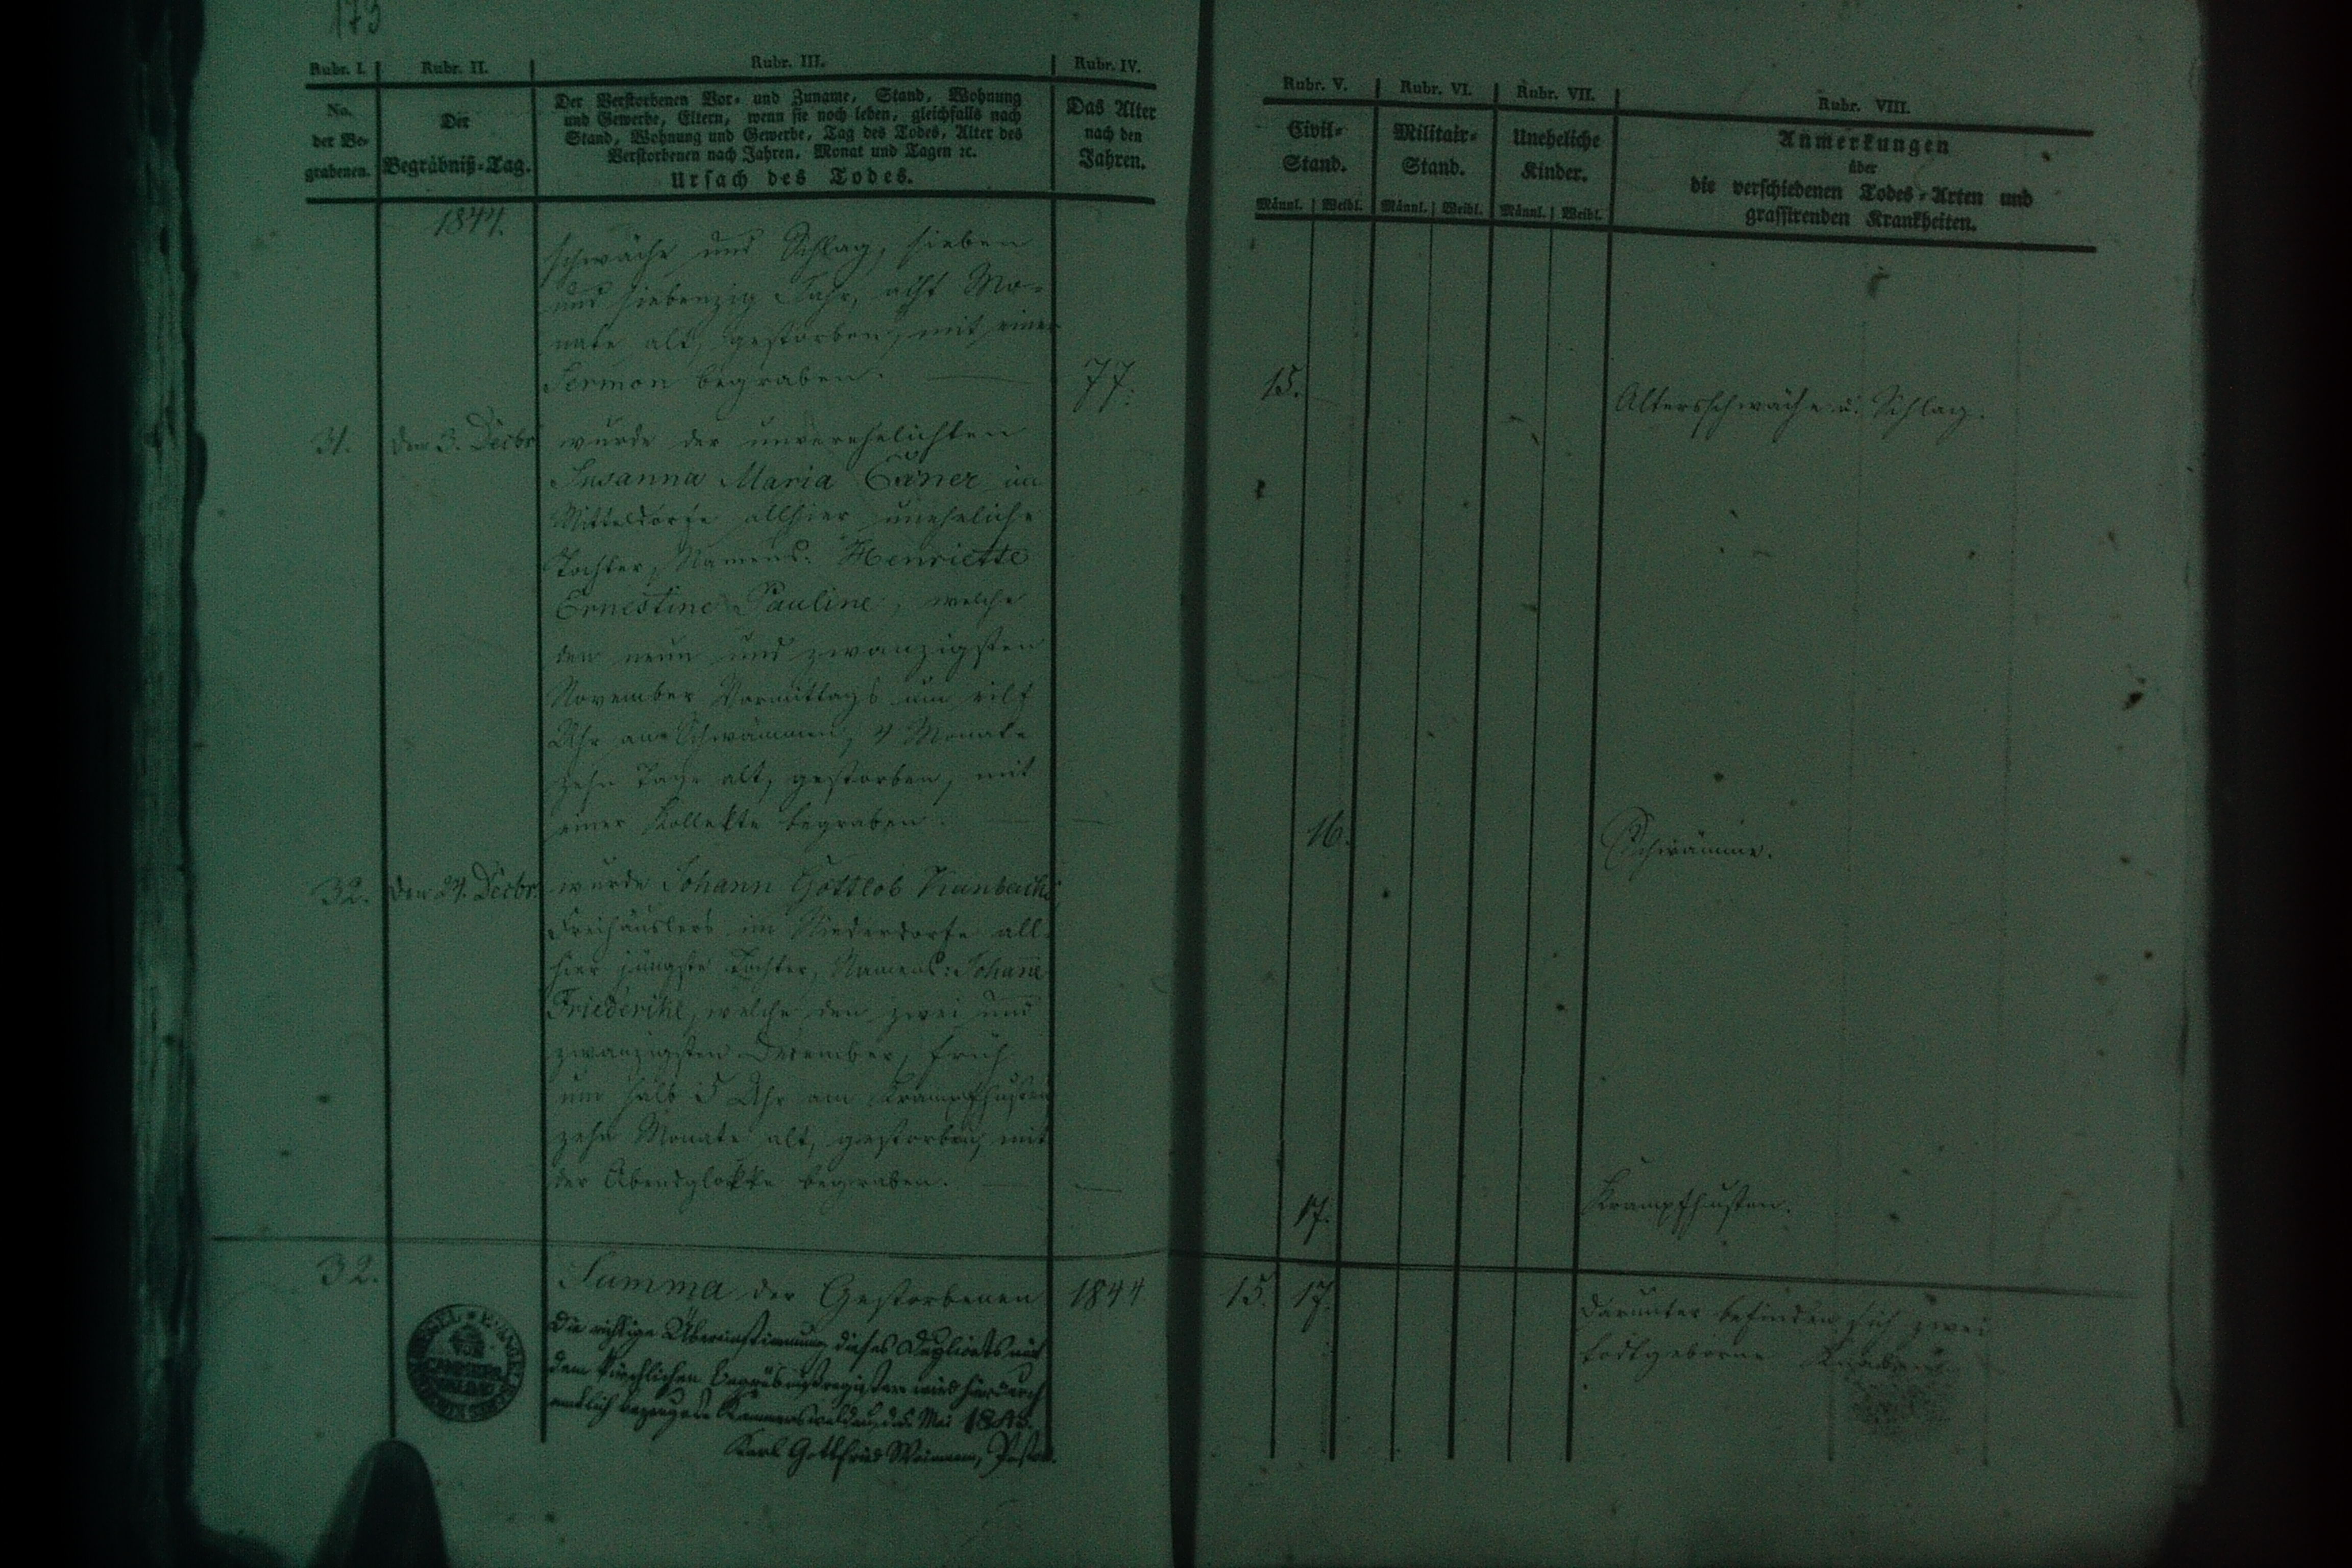 173
Rubr. I. Rubr. II. Rubr. III. Rubr. IV.
No. der Be- grabenen.
Der Begräbniß-Tag.
Der Verstorbenen Vor- und Zuname, Stand, Wohnung
und Gewerbe, Eltern, wenn sie noch leben, gleichfalls nach
Stand, Wohnung und Gewerbe, Tag des Todes, Alter des
Verstorbenen nach Jahren, Monat und Tagen ꝛc.
Ursach des Todes.
Das Alter
nach den
Jahren.
1844.
schwäche und Schlag, sieben
und siebenzig Jahr, acht Mo-
nate alt, gestorben, mit einer
Sermon begraben. 77.
31. den 3. Decbr. wurde der unverehelichten
Susanna Maria im
Mitteldorfe allhier uneheliche
Tochter, Namens: Henriette
Ernestine Pauline, welche
den neun und zwanzigsten
November Vormittags um eilf
Uhr an Schwämmen, 4 Monate
zehn Tage alt, gestorben, mit
einer Kollekte begraben. —
32. den 24. Decbr. wurde Johann Gottlob
Freihäuslers im Niederdorfe all-
hier jüngste Tochter, Namens: Johane
Friederike, welche den zwei und
zwanzigsten December, früh
um halb 5 Uhr am Krampfhusten
zehn Monate alt, gestorben, mit
der Abendglokke begraben. —
32. Summa der Gestorbenen 1844
Die richtige Übereinstimmung dieses Duplicats mit
dem kirchlichen Begräbnißregister wird hierdurch
amtlich bezeuget. Kammerswaldau, d. Mai 1845.
Karl Gottfried Pastor.
Rubr. V. Rubr. VI. Rubr. VII. Rubr. VIII.
Civil-
Stand.
Militair-
Stand.
Uneheliche
Kinder.
Anmerkungen
über
die verschiedenen Todes-Arten und
grassirenden Krankheiten.
Männl. Weibl. Männl. Weibl. Männl. Weibl.
15. Altersschwäche u. Schlag.
16. Schwämme.
17. Krampfhusten.
15. 17. Darunter befinden sich zwei
todtgeborne Knaben.